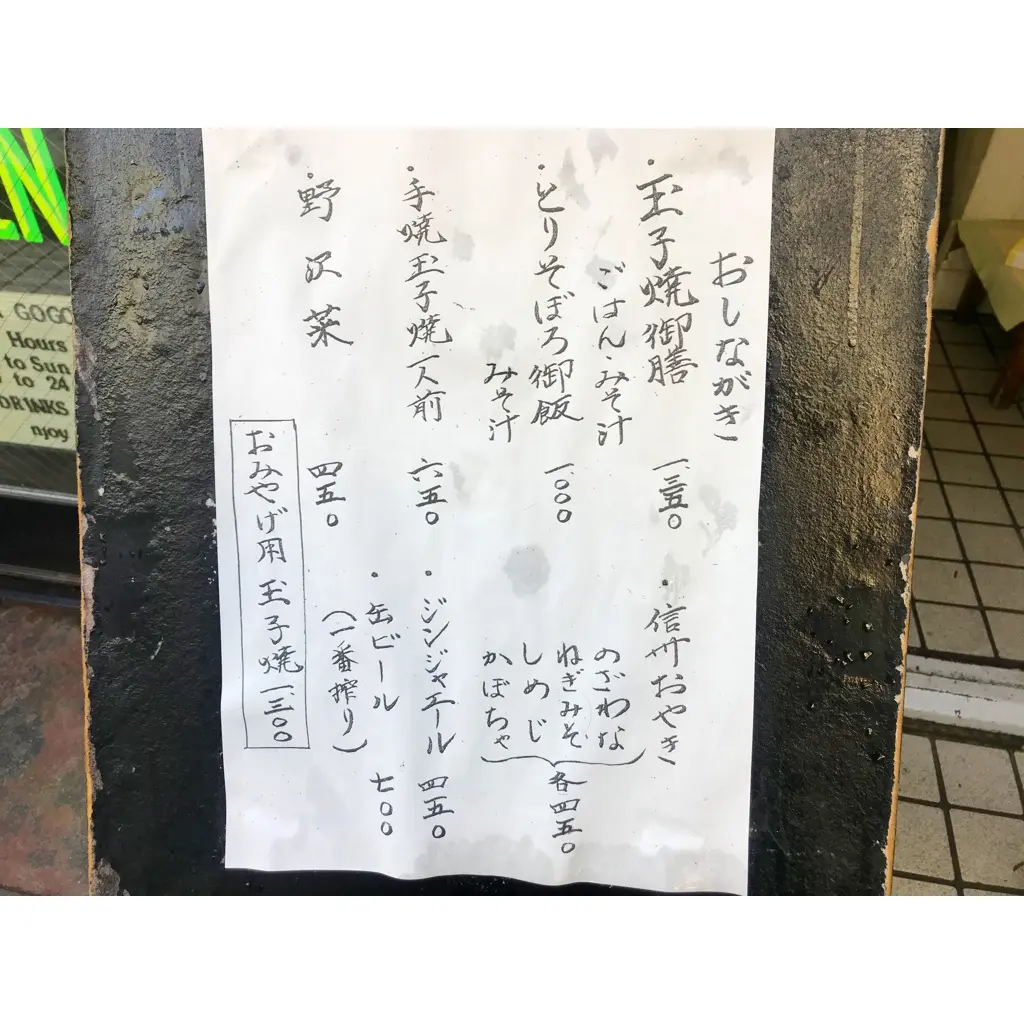 おしながき
・玉子焼御膳 一三五〇
ごはん・みそ汁
・とりそぼろ御飯 一〇〇〇
みそ汁
・手焼玉子焼一人前 六五〇
・野沢菜 四五〇
・信州おやき
のざわな
ねぎみそ
しめじ
かぼちゃ
各四五〇
・ジンジャエール 四五〇
・缶ビール 七〇〇
(一番搾り)
おみやげ用玉子焼 一三〇〇
GOGO
Hours
to Sun
to 24
DRINKS
njoy